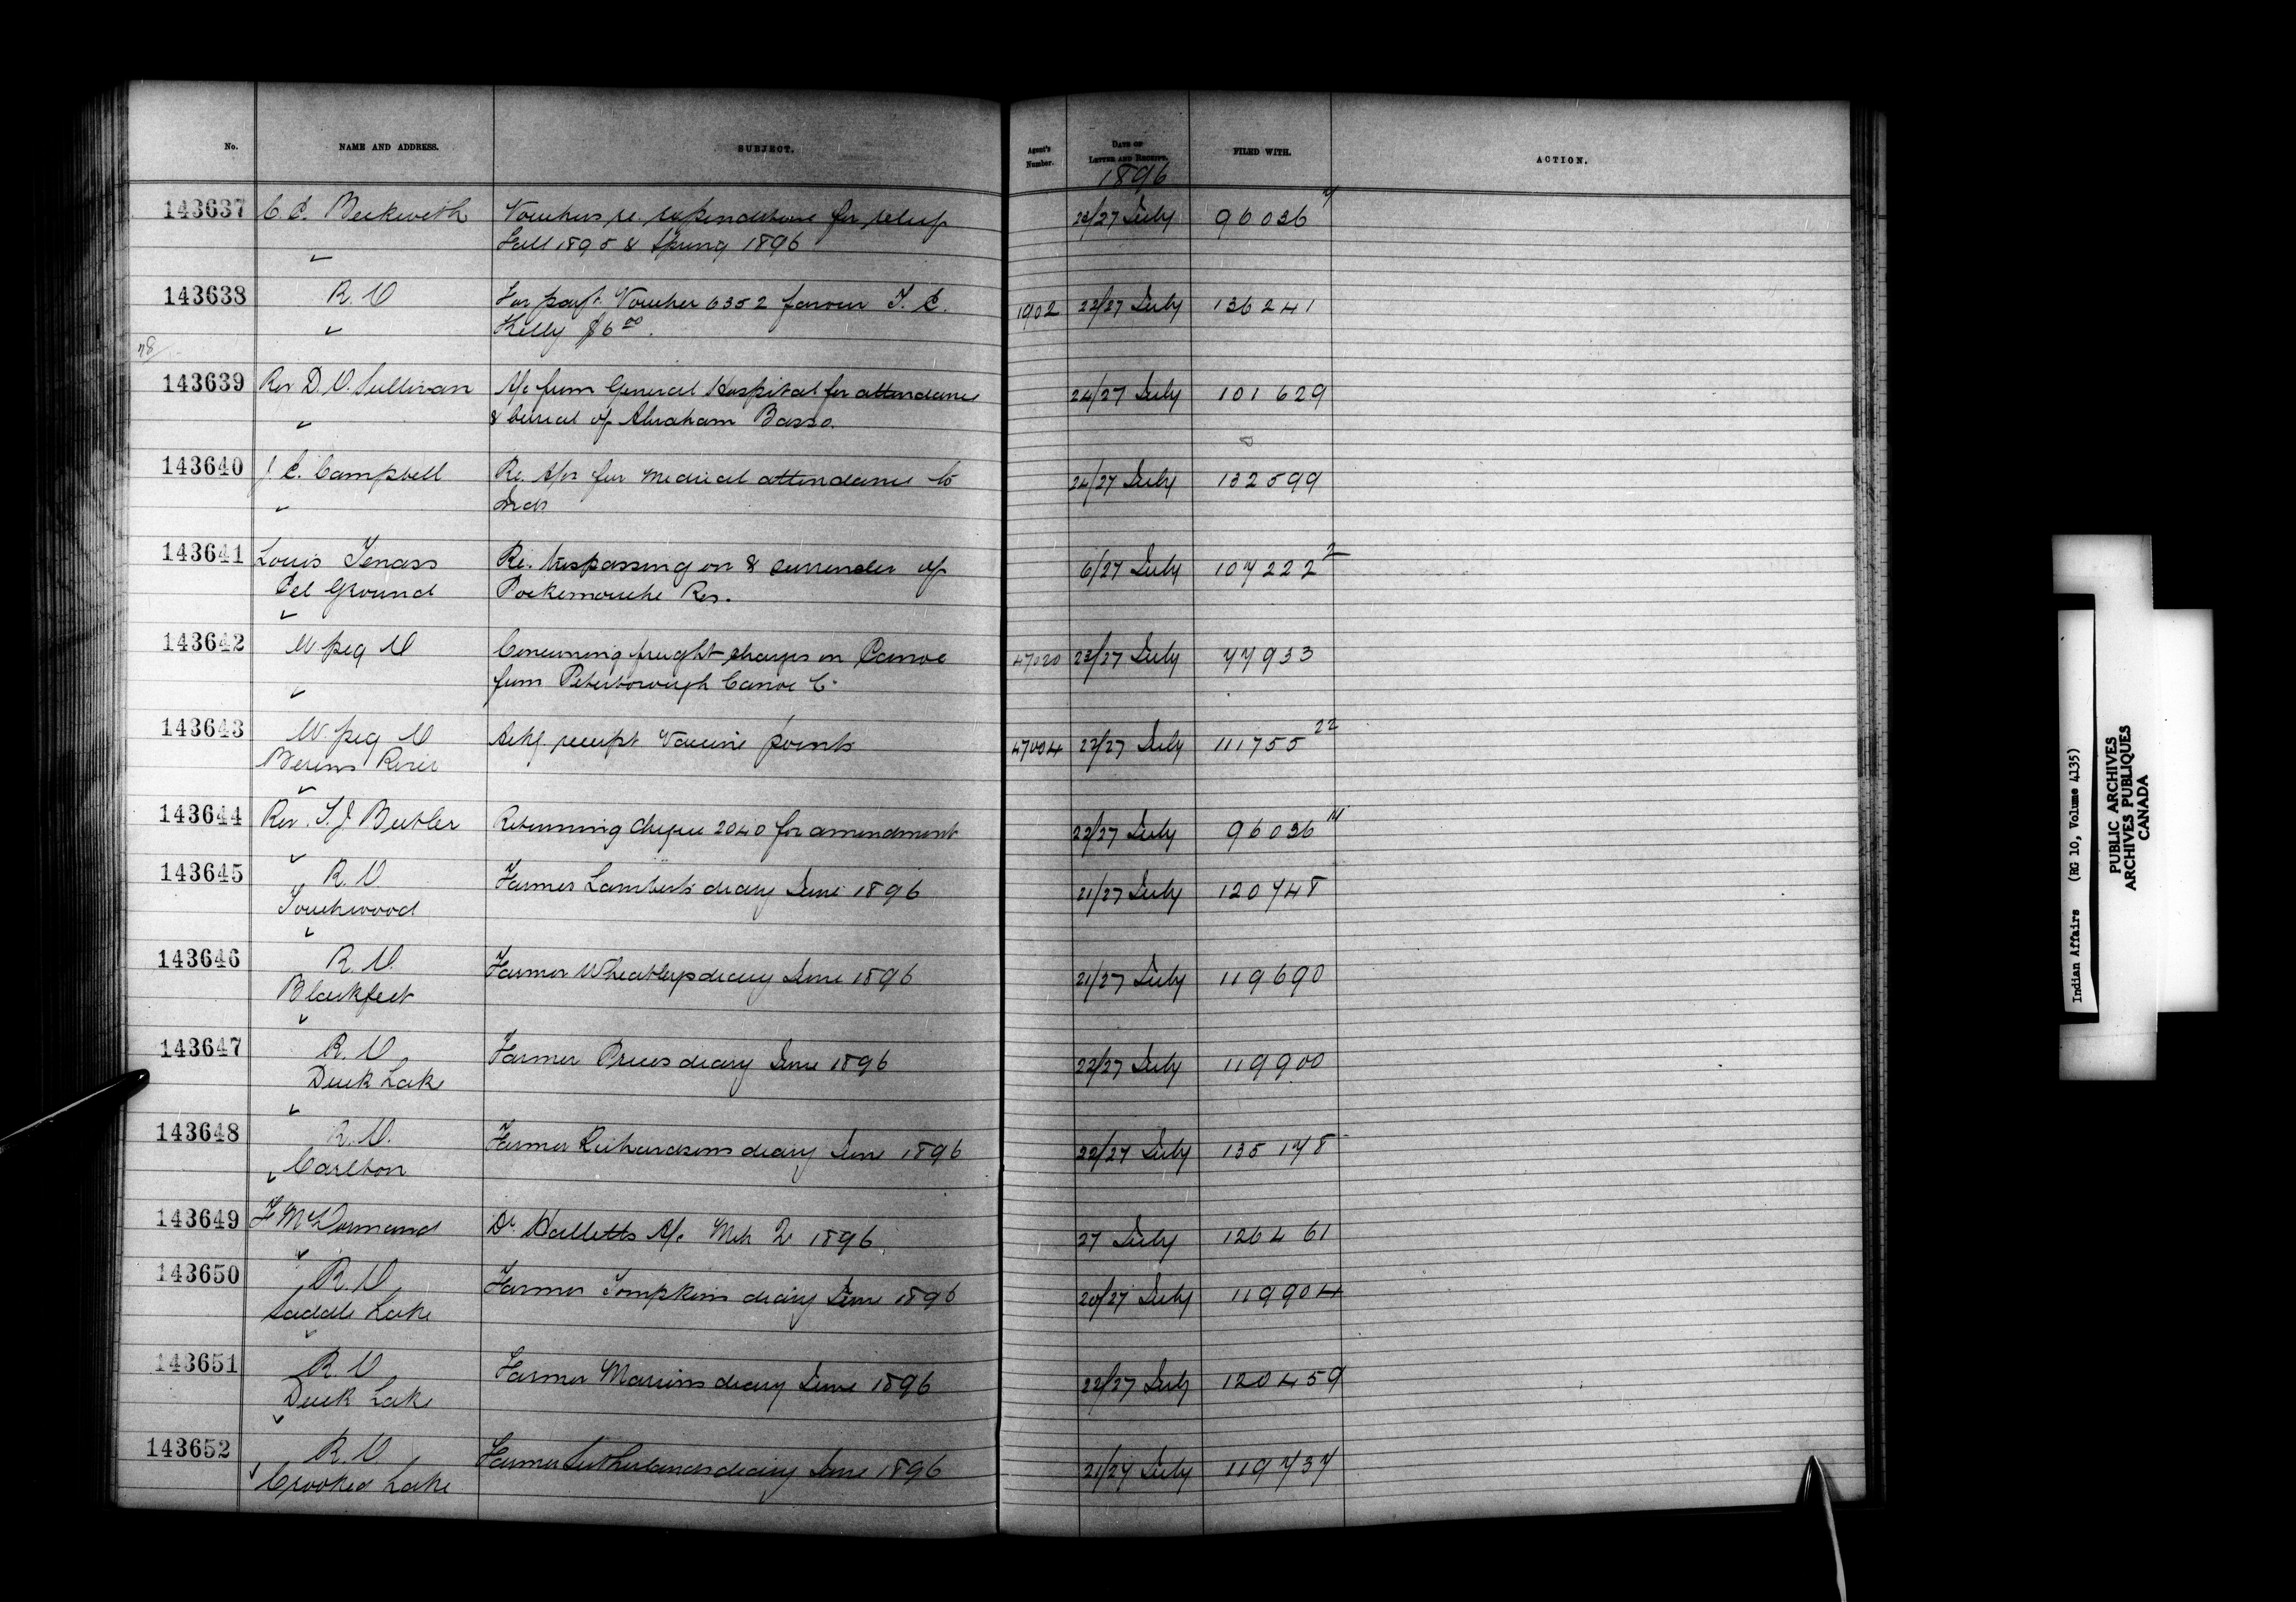 No. NAME AND ADDRESS. SUBJECT. Agent's Number. DATE OF LETTER AND RECEIPT. FILED WITH. ACTION.
1896
143637 C. C. Beckwith Vouchers re expenditure for relief 23/27 July 96036 7
Fall 1895 & Spring 1896
143638 R. O For payt. Voucher 6352 favour T. E. 1902 22/27 July 136241
Kelly $6 00.
78/
143639 Rev D. O. Sullivan A/c from General Hospital for attendance 24/27 July 101629
& burial of Abraham Basso.
143640 J. C. Campbell Re. A/cs for Medical attendance to 24/27 July 132599
Inds
143641 Louis Tenass Re. trespassing on & surrender of 6/27 July 107222 2
Eel Ground Pockemouche Res.
143642 W peg O Concerning freight charges on Canoe 47020 23/27 July 77933
from Peterborough Canoe Co
143643 W. peg O Ackg receipt Vaccine points 47004 23/27 July 111755 22
Berens River
143644 Rev. T. J Butler Returning cheque 2040 for amendment 22/27 July 96036
143645 R. O. Farmer Lamberts diary June 1896 21/27 July 120748
Touchwood
143646 R. O. Farmer Wheatleys diary June 1896 21/27 July 119690
Blackfeet
143647 R. O Farmer Prices diary June 1896 22/27 July 119900
Duck Lake
143648 R. O. Farmer Richardsons diary June 1896 22/27 July 135178
Carlton
143649 F McDormand Dr. Halletts A/c Mch Qr 1896. 27 July 126461
143650 R. O. Farmer Tompkins diary June 1896 20/27 July 119904
Saddle Lake
143651 R. O Farmer Marions diary June 1896 22/27 July 120459
Duck Lake
143652 R. O. Farmer Sutherlands diary June 1896 21/27 July 119737
Crooked Lake
Indian Affairs (RG 10, Volume 4135)
PUBLIC ARCHIVES
ARCHIVES PUBLIQUES
CANADA